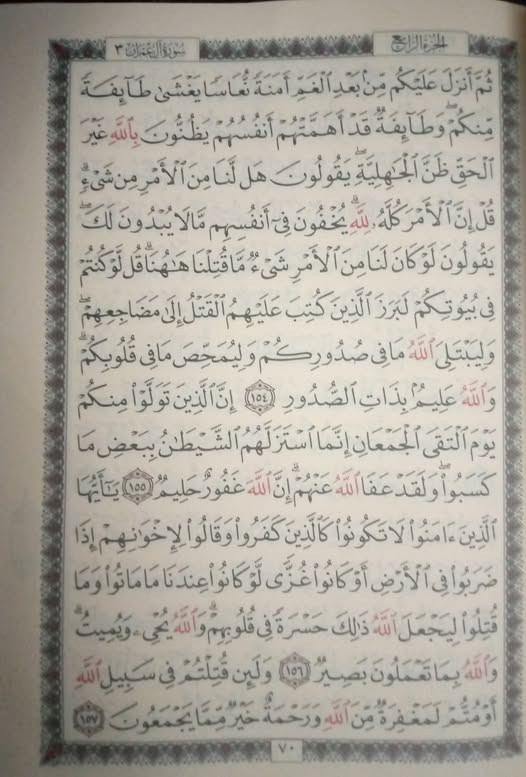 الجزء الرابع
سورة آل عمران ٣
ثُمَّ أَنزَلَ عَلَيْكُم مِّنۢ بَعْدِ ٱلْغَمِّ أَمَنَةً نُّعَاسًا يَغْشَىٰ طَآئِفَةً
مِّنكُمْ ۖ وَطَآئِفَةٌ قَدْ أَهَمَّتْهُمْ أَنفُسُهُمْ يَظُنُّونَ بِٱللَّهِ غَيْرَ
ٱلْحَقِّ ظَنَّ ٱلْجَٰهِلِيَّةِ ۖ يَقُولُونَ هَل لَّنَا مِنَ ٱلْأَمْرِ مِن شَىْءٍ ۗ
قُلْ إِنَّ ٱلْأَمْرَ كُلَّهُۥ لِلَّهِ ۗ يُخْفُونَ فِىٓ أَنفُسِهِم مَّا لَا يُبْدُونَ لَكَ ۖ
يَقُولُونَ لَوْ كَانَ لَنَا مِنَ ٱلْأَمْرِ شَىْءٌ مَّا قُتِلْنَا هَٰهُنَا ۗ قُل لَّوْ كُنتُمْ
فِى بُيُوتِكُمْ لَبَرَزَ ٱلَّذِينَ كُتِبَ عَلَيْهِمُ ٱلْقَتْلُ إِلَىٰ مَضَاجِعِهِمْ ۖ
وَلِيَبْتَلِىَ ٱللَّهُ مَا فِى صُدُورِكُمْ وَلِيُمَحِّصَ مَا فِى قُلُوبِكُمْ ۗ
وَٱللَّهُ عَلِيمٌۢ بِذَاتِ ٱلصُّدُورِ ١٥٤ إِنَّ ٱلَّذِينَ تَوَلَّوْا۟ مِنكُمْ
يَوْمَ ٱلْتَقَى ٱلْجَمْعَانِ إِنَّمَا ٱسْتَزَلَّهُمُ ٱلشَّيْطَٰنُ بِبَعْضِ مَا
كَسَبُوا۟ ۖ وَلَقَدْ عَفَا ٱللَّهُ عَنْهُمْ ۗ إِنَّ ٱللَّهَ غَفُورٌ حَلِيمٌ ١٥٥ يَٰٓأَيُّهَا
ٱلَّذِينَ ءَامَنُوا۟ لَا تَكُونُوا۟ كَٱلَّذِينَ كَفَرُوا۟ وَقَالُوا۟ لِإِخْوَٰنِهِمْ إِذَا
ضَرَبُوا۟ فِى ٱلْأَرْضِ أَوْ كَانُوا۟ غُزًّى لَّوْ كَانُوا۟ عِندَنَا مَا مَاتُوا۟ وَمَا
قُتِلُوا۟ لِيَجْعَلَ ٱللَّهُ ذَٰلِكَ حَسْرَةً فِى قُلُوبِهِمْ ۗ وَٱللَّهُ يُحْىِۦ وَيُمِيتُ ۗ
وَٱللَّهُ بِمَا تَعْمَلُونَ بَصِيرٌ ١٥٦ وَلَئِن قُتِلْتُمْ فِى سَبِيلِ ٱللَّهِ
أَوْ مُتُّمْ لَمَغْفِرَةٌ مِّنَ ٱللَّهِ وَرَحْمَةٌ خَيْرٌ مِّمَّا يَجْمَعُونَ ١٥٧
٧٠